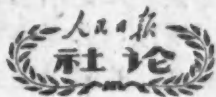 人民日报
社论